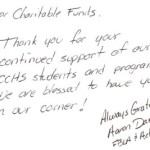 or Charitable Funds.
Thank you for your
continued support of our
CCHS students and program
We are blessed to have yo
in our corner!
Always Grate
Aaron Da
FBLA & Ac